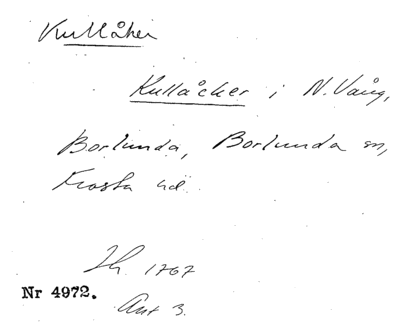 Kullåker
Kullåcker i N. Vång,
Borlunda, Borlunda sn,
Frosta hd.
Lh. 1767
Nr 4972.
Ant 3.